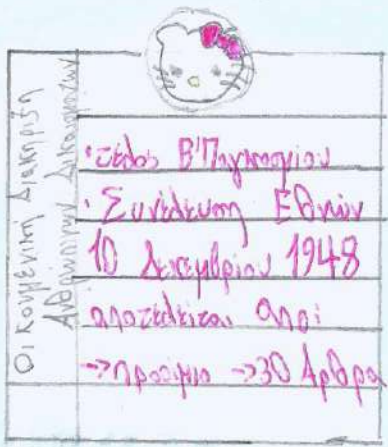 Οικουμενική Διακήρυξη
Ανθρωπίνων Δικαιωμάτων
·τέλος Β'Παγκοσμίου
·Συνέλευση Εθνών
10 Δεκεμβρίου 1948
αποτελείται από:
→προοίμιο →30 Άρθρα